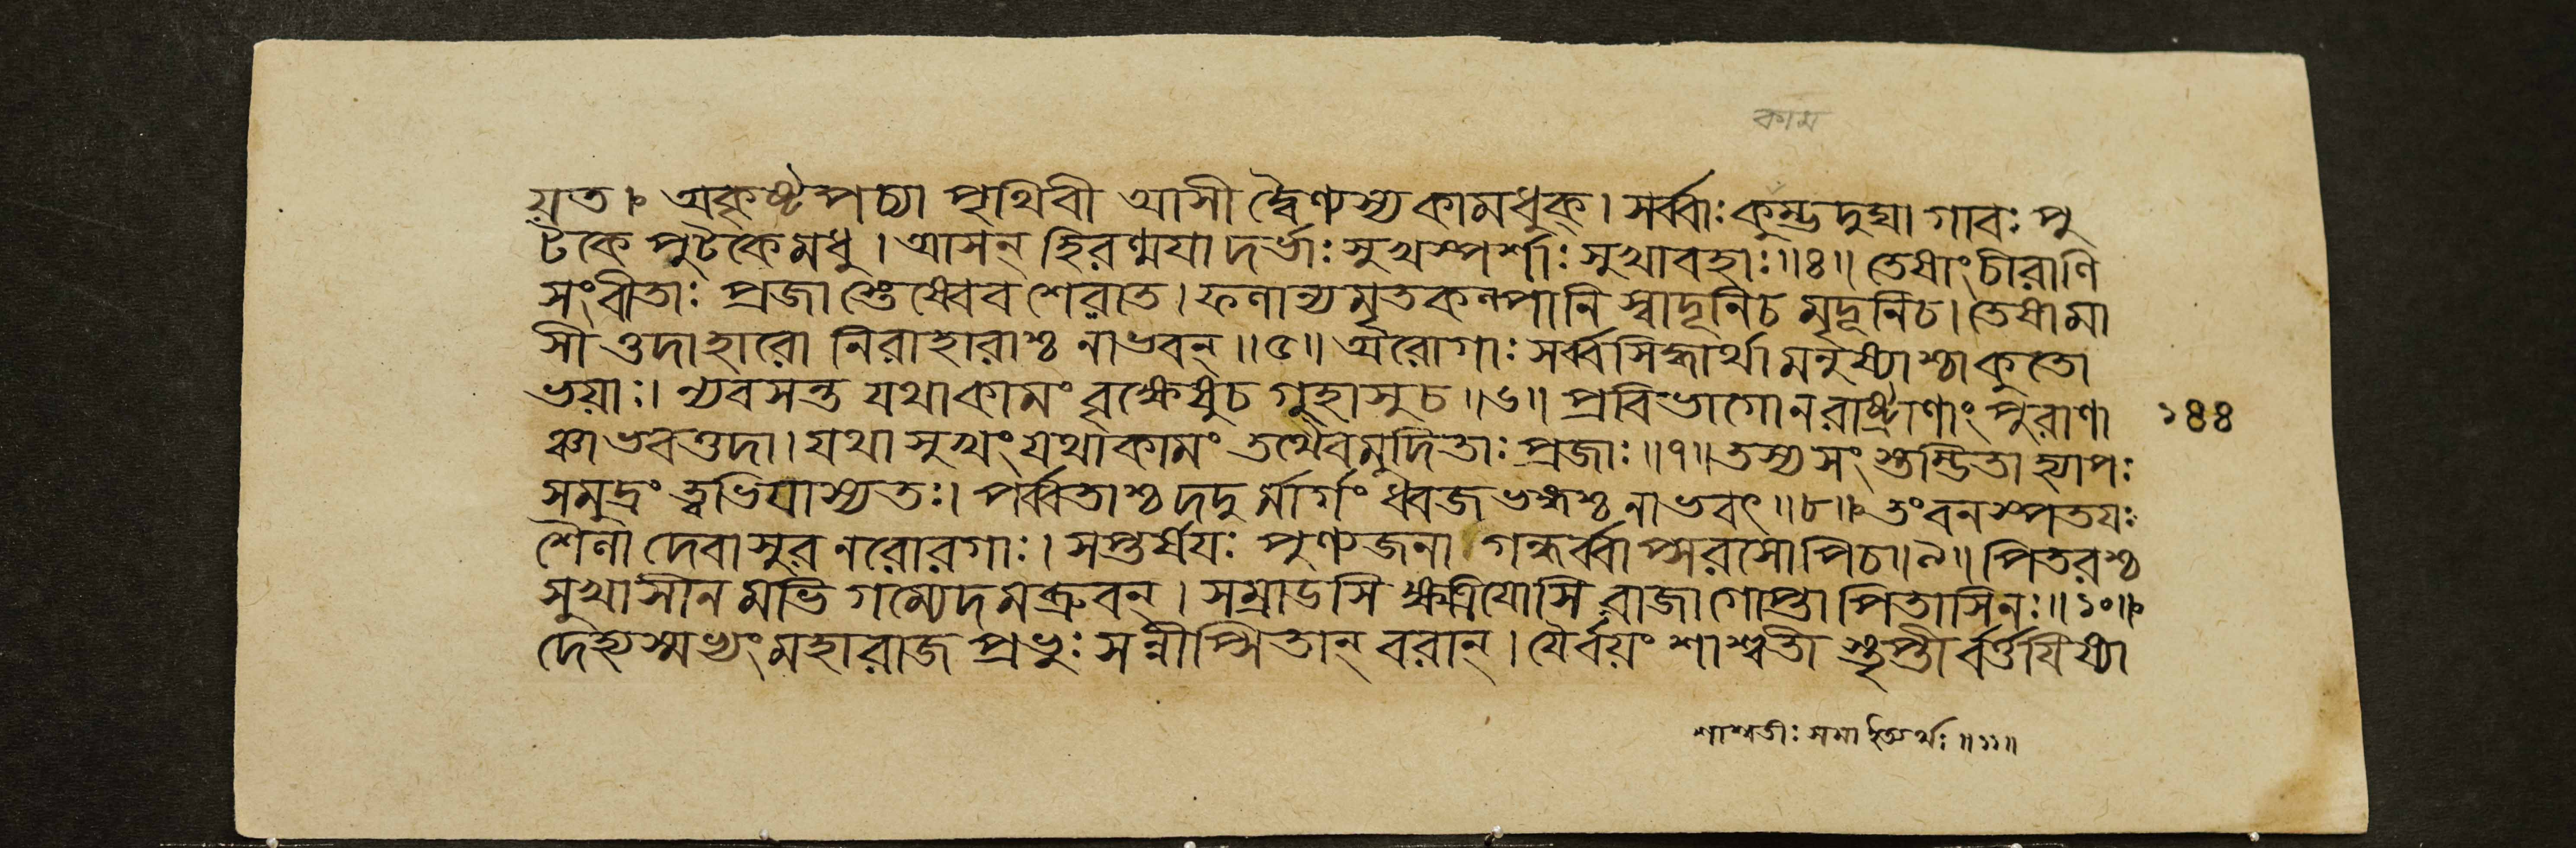 কাম
য়ত। অকৃষ্টপচ্যা পৃথিবী আসীদ্বৈণ্যস্য কামধুক্। সর্ব্বাঃ কুম্ভদুঘা গাবঃ পু
টকে পুটকে মধু। আসন্ হিরণ্ময়া দর্ভাঃ সুখস্পর্শাঃ সুখাবহাঃ॥৪॥ তেষাং চীরাণি
সংবীতাঃ প্রজাস্তেষ্বেব শেরতে। ফলান্যমৃতকল্পানি স্বাদূনি চ মৃদূনি চ। তেষামা
সীত্তদাহারো নিরাহারাশ্চ নাভবন্॥৫॥ অরোগাঃ সর্ব্বসিদ্ধার্থা মনুষ্যাশ্চাকুতো
ভয়াঃ। ন্যবসন্ত যথাকামং বৃক্ষেষু চ গুহাসু চ॥৬॥ প্রবিভাগো ন রাষ্ট্রাণাং পুরাণা
১৪৪
ঞ্চাভবত্তদা। যথাসুখং যথাকামং তথৈব মুদিতাঃ প্রজাঃ॥৭॥ তস্য সংস্তম্ভিতা হ্যাপঃ
সমুদ্রং ত্বভিযাস্যতঃ। পর্ব্বতাশ্চ দদুর্মার্গং ধ্বজভঙ্গশ্চ নাভবৎ॥৮॥ তং বনস্পতয়ঃ
শৈলা দেবাসুরনরোরগাঃ। সপ্তর্ষয়ঃ পুণ্যজনা গন্ধর্ব্বাপ্সরসোপি চ॥৯॥ পিতরশ্চ
সুখাসীনমভিগম্যেদমব্রুবন্। সম্রাডসি ক্ষত্রিয়োসি রাজা গোপ্তা পিতাসি নঃ॥১০॥
দেহ্যস্মভ্যং মহারাজ প্রভুঃ সন্নীপ্সিতান্ বরান্। যৈর্বয়ং শাশ্বতীস্তৃপ্তীর্বর্ত্তয়িষ্যা
শাশ্বতীঃ সমা ইত্যর্থঃ॥১১॥